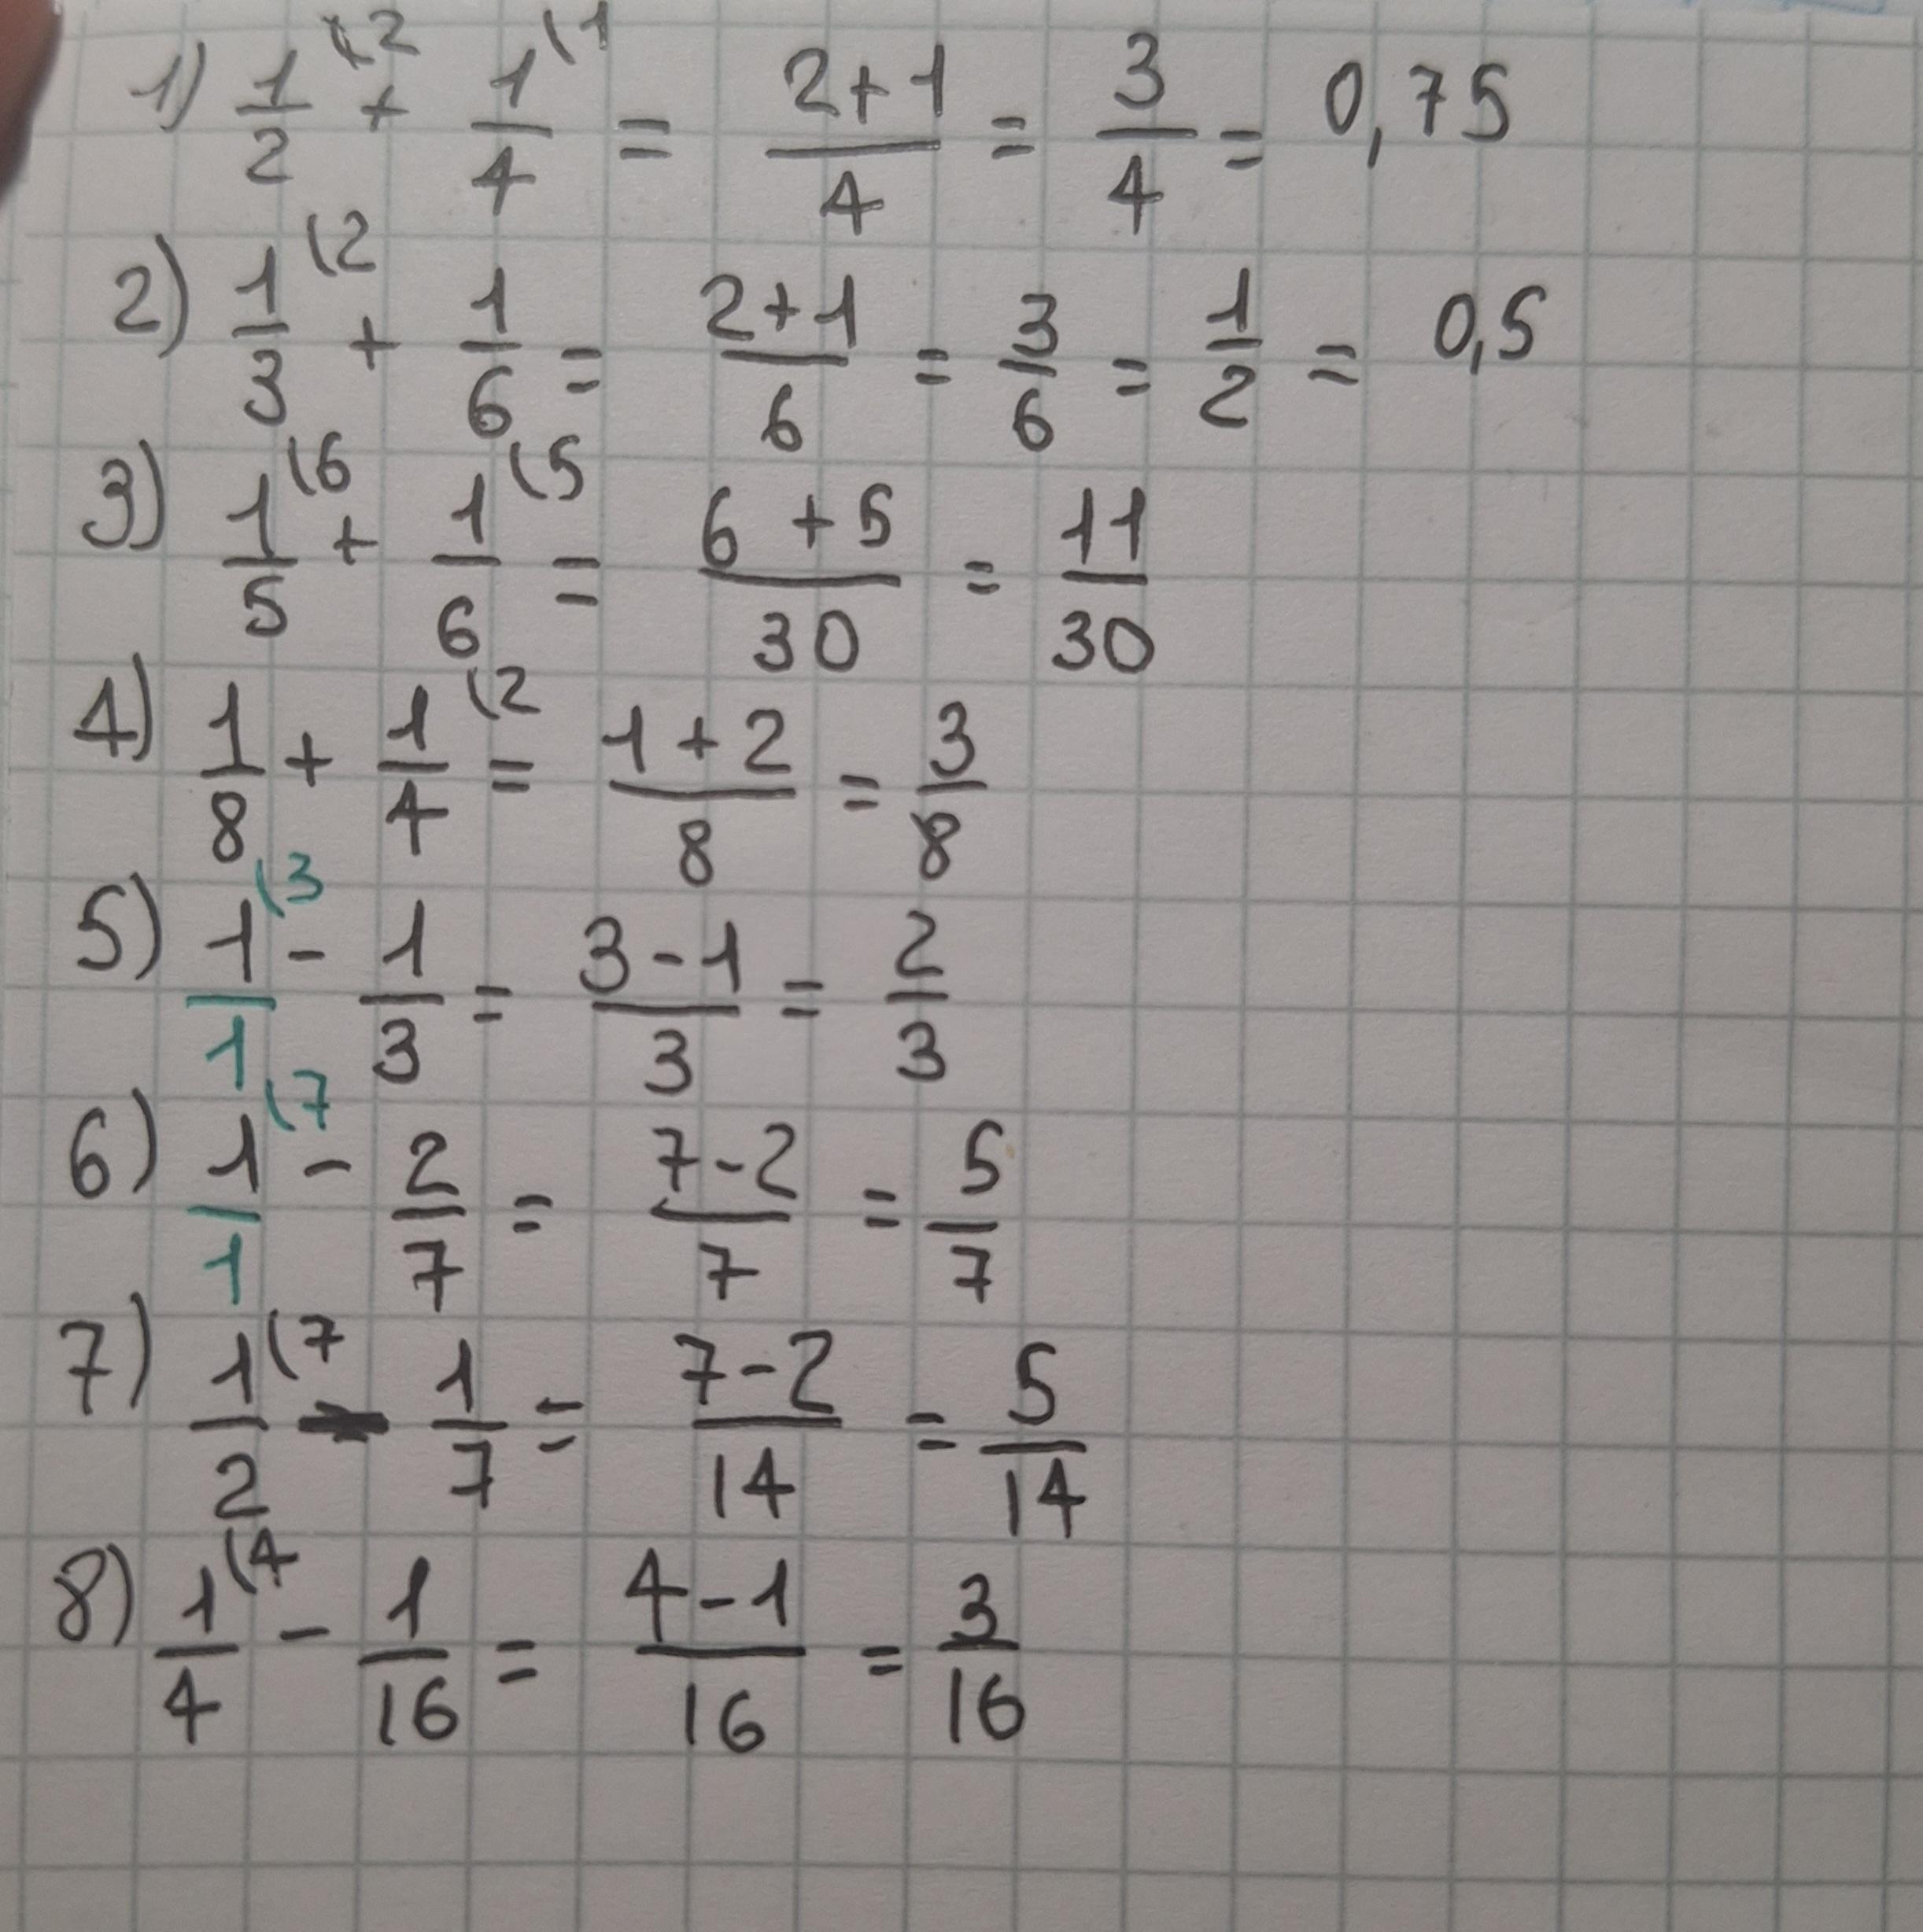 1) 1/2 (2 + 1/4 (1 = 2+1/4 = 3/4 = 0,75
2) 1/3 (2 + 1/6 = 2+1/6 = 3/6 = 1/2 = 0,5
3) 1/5 (6 + 1/6 (5 = 6+5/30 = 11/30
4) 1/8 + 1/4 (2 = 1+2/8 = 3/8
5) 1/1 (3 - 1/3 = 3-1/3 = 2/3
6) 1/1 (7 - 2/7 = 7-2/7 = 5/7
7) 1/2 (7 - 1/7 = 7-2/14 = 5/14
8) 1/4 (4 - 1/16 = 4-1/16 = 3/16